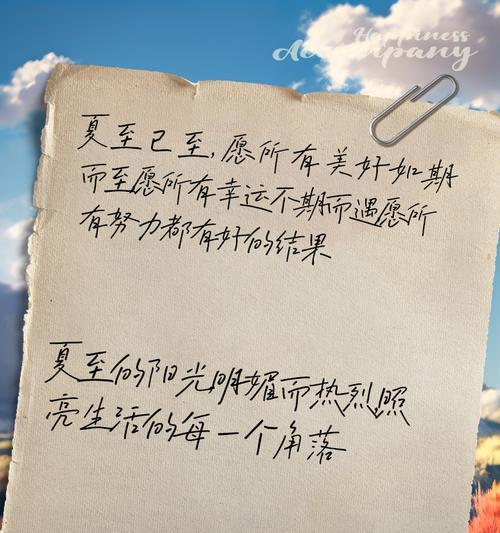 Happiness
Accompany
夏至已至,愿所有美好如期
而至愿所有幸运不期而遇愿所
有努力都有好的结果
夏至的阳光明媚而热烈,照
亮生活的每一个角落